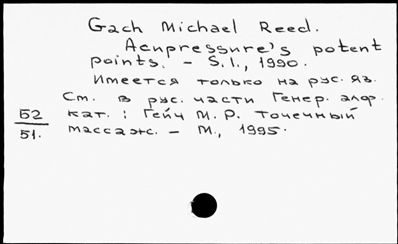 Gach Michael Reed.
Acupressure's potent
points. – S.l., 1990.
Имеется только на рус. яз.
См. в рус. части Генер. алф.
Б2 кат.: Гейч М. Р. Точечный
51. массаж. – М., 1995.